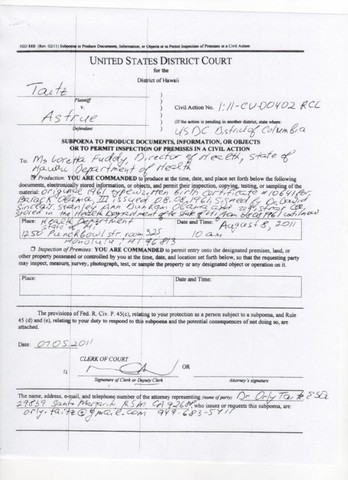 AO 88B (Rev. 02/11) Subpoena to Produce Documents, Information, or Objects or to Permit Inspection of Premises in a Civil Action
UNITED STATES DISTRICT COURT
for the
District of Hawaii
Taitz
Plaintiff
v.
Astrue
Defendant
Civil Action No. 1:11-CV-00402 RCL
(If the action is pending in another district, state where:
USDC District of Columbia
SUBPOENA TO PRODUCE DOCUMENTS, INFORMATION, OR OBJECTS
OR TO PERMIT INSPECTION OF PREMISES IN A CIVIL ACTION
To: Ms Loretta Fuddy, Director of Health, State of
Hawaii Department of Health
Production: YOU ARE COMMANDED to produce at the time, date, and place set forth below the following
documents, electronically stored information, or objects, and permit their inspection, copying, testing, or sampling of the
material: original 1961 typewritten birth certificate #10641 for
Barack Obama, II issued 08.08.1961 signed by Dr. David
Sinclair, Stanley Ann Dunham Obama and registrar Lee,
stored in the Health Department of the State of HI from 08.08.1961 until now
Place: Health Department
State of HI
1250 Punchbowl str. room 325
Honolulu, HI 96813
Date and Time: August 8, 2011
10 am
Inspection of Premises: YOU ARE COMMANDED to permit entry onto the designated premises, land, or
other property possessed or controlled by you at the time, date, and location set forth below, so that the requesting party
may inspect, measure, survey, photograph, test, or sample the property or any designated object or operation on it.
Place:
Date and Time:
The provisions of Fed. R. Civ. P. 45(c), relating to your protection as a person subject to a subpoena, and Rule
45 (d) and (e), relating to your duty to respond to this subpoena and the potential consequences of not doing so, are
attached.
Date: 07.05.2011
CLERK OF COURT
OR
Signature of Clerk or Deputy Clerk
Attorney's signature
The name, address, e-mail, and telephone number of the attorney representing (name of party) Dr Orly Taitz ESQ
29839 Santa Margarita RSM CA 92688, who issues or requests this subpoena, are:
orly.taitz@gmail.com 949-683-5411